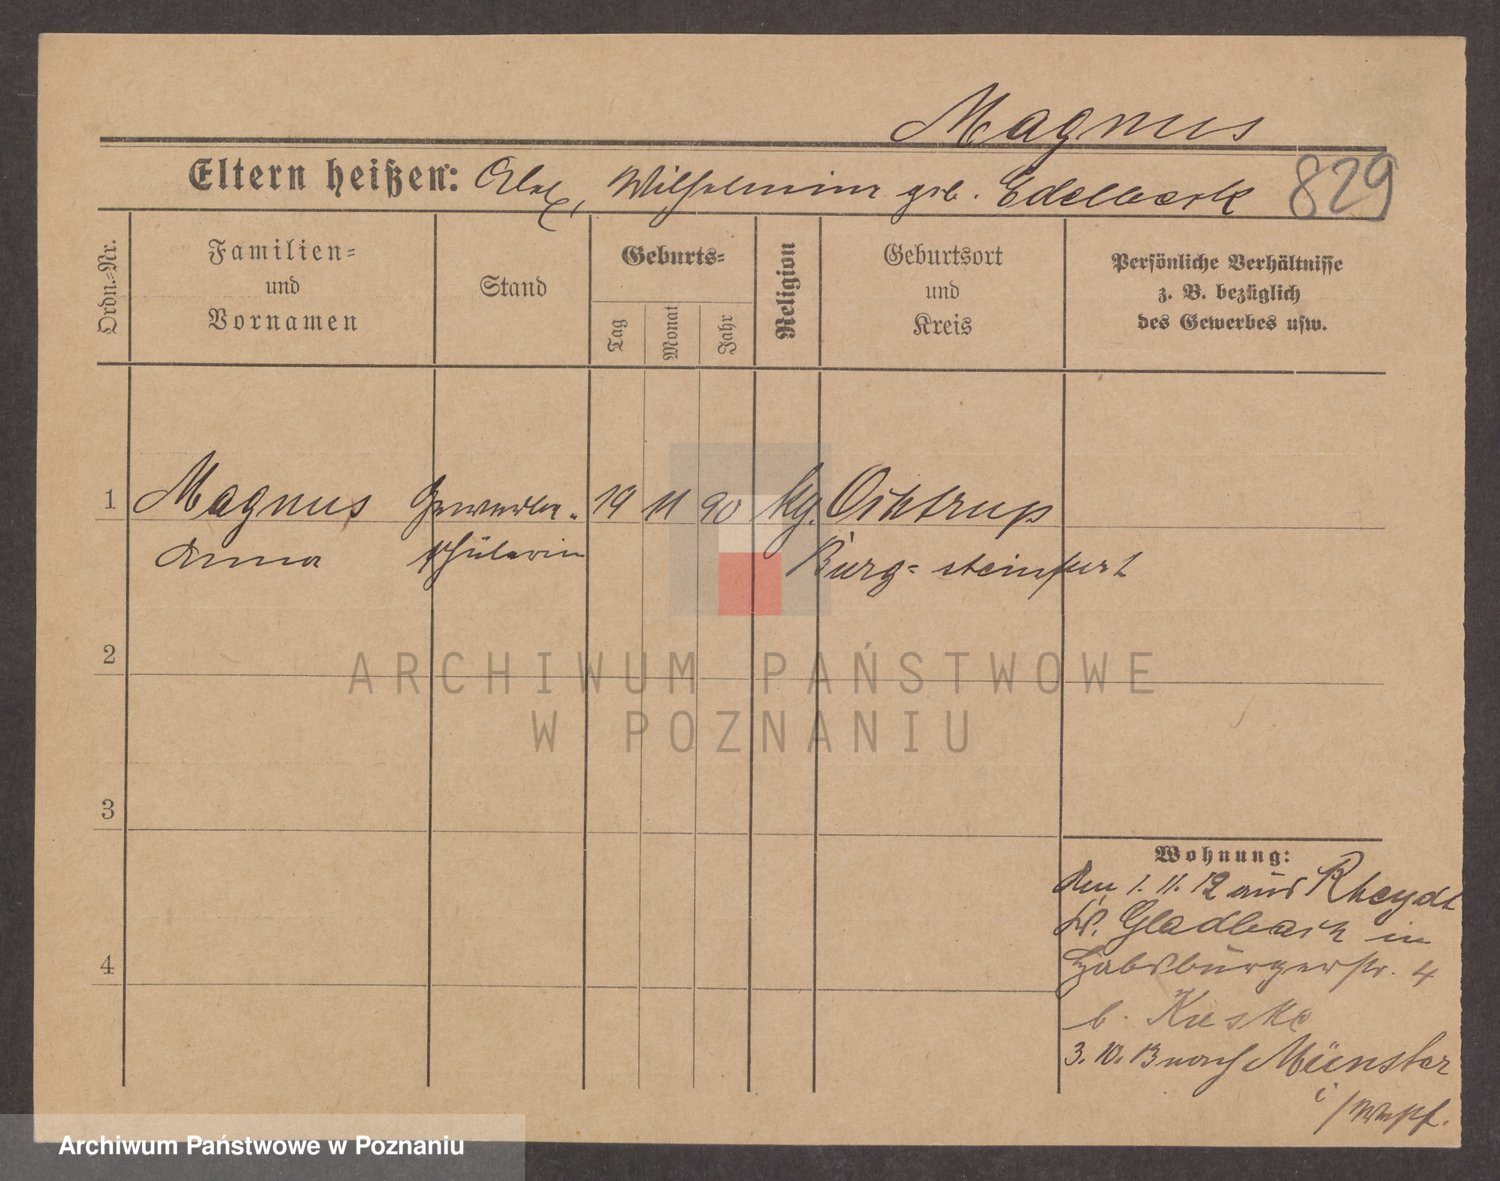 Magnus
829
Eltern heißen: Alex, Wilhelmine geb. Edelbrock
Ordn.-Nr.
Familien-
und
Vornamen
Stand
Geburts-
Tag
Monat
Jahr
Religion
Geburtsort
und
Kreis
Persönliche Verhältnisse
z. B. bezüglich
des Gewerbes usw.
1 Magnus Gewerbe- 19 11 90 kg. Ochtrup
Anna schülerin Burg-steinfurt
2
3
4
Wohnung:
den 1. 11. 12 aus Rheydt
Kr. Gladbach in
Habsburgerstr. 4
b. Kuske
3. 10. 13 nach Münster
i/Westf.
ARCHIWUM PAŃSTWOWE
W POZNANIU
Archiwum Państwowe w Poznaniu